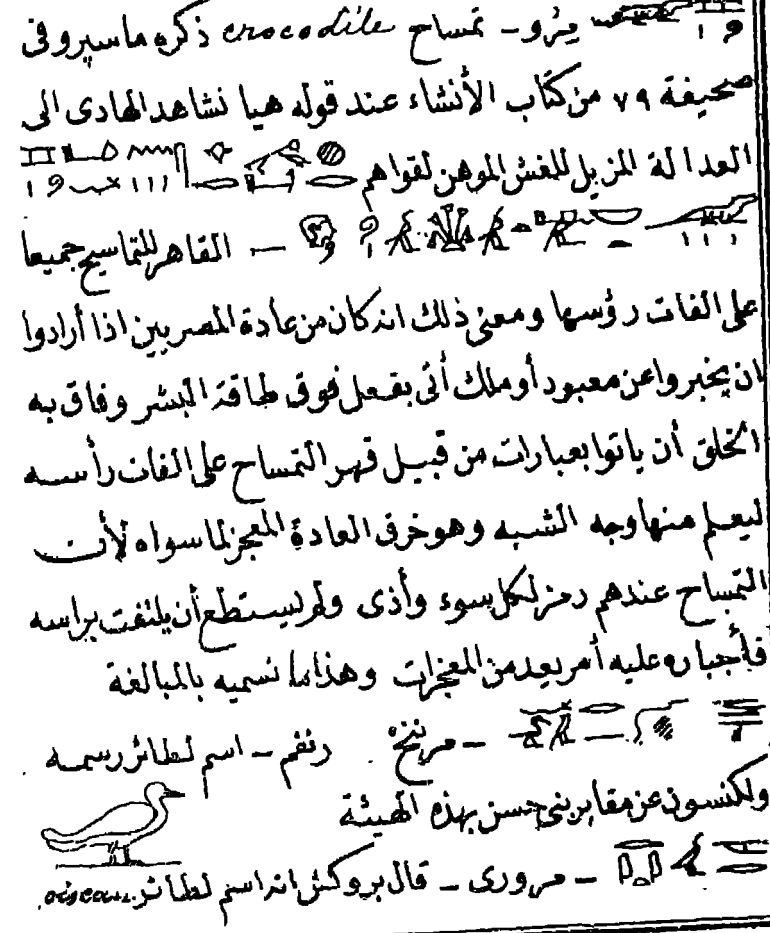 – تمساح crocodile ذكره ماسبرو فى
صحيفة ٧٩ من كتاب الأنشاء عند قوله هيا نشاهد الهادى الى
العدالة المزيل للغش الموهن لقواهم
– القاهر للتماسيح جميعا
على الفات رؤسها ومعنى ذلك انه كان من عادة المصريين اذا أرادوا
ان يخبروا عن معبود أو ملك أتى بفعل فوق طاقة البشر وفاق به
الخلق أن ياتوا بعبارات من قبيل قهر التمساح على الفات رأسه
ليعلم منها وجه الشبه وهو خرق العادة المعجز لما سواه لأن
التمساح عندهم رمز لكل سوء وأذى ولم يستطع أن يلتفت براسه
فأجباره عليه أمر يعد من المعجزات وهذا ما نسميه بالمبالغة
– اسم لطائر رسمه
ولكنسون عن مقابر بنى حسن بهذه الهيئة
– مرورى – قال بروكش انه اسم لطائر oiseau